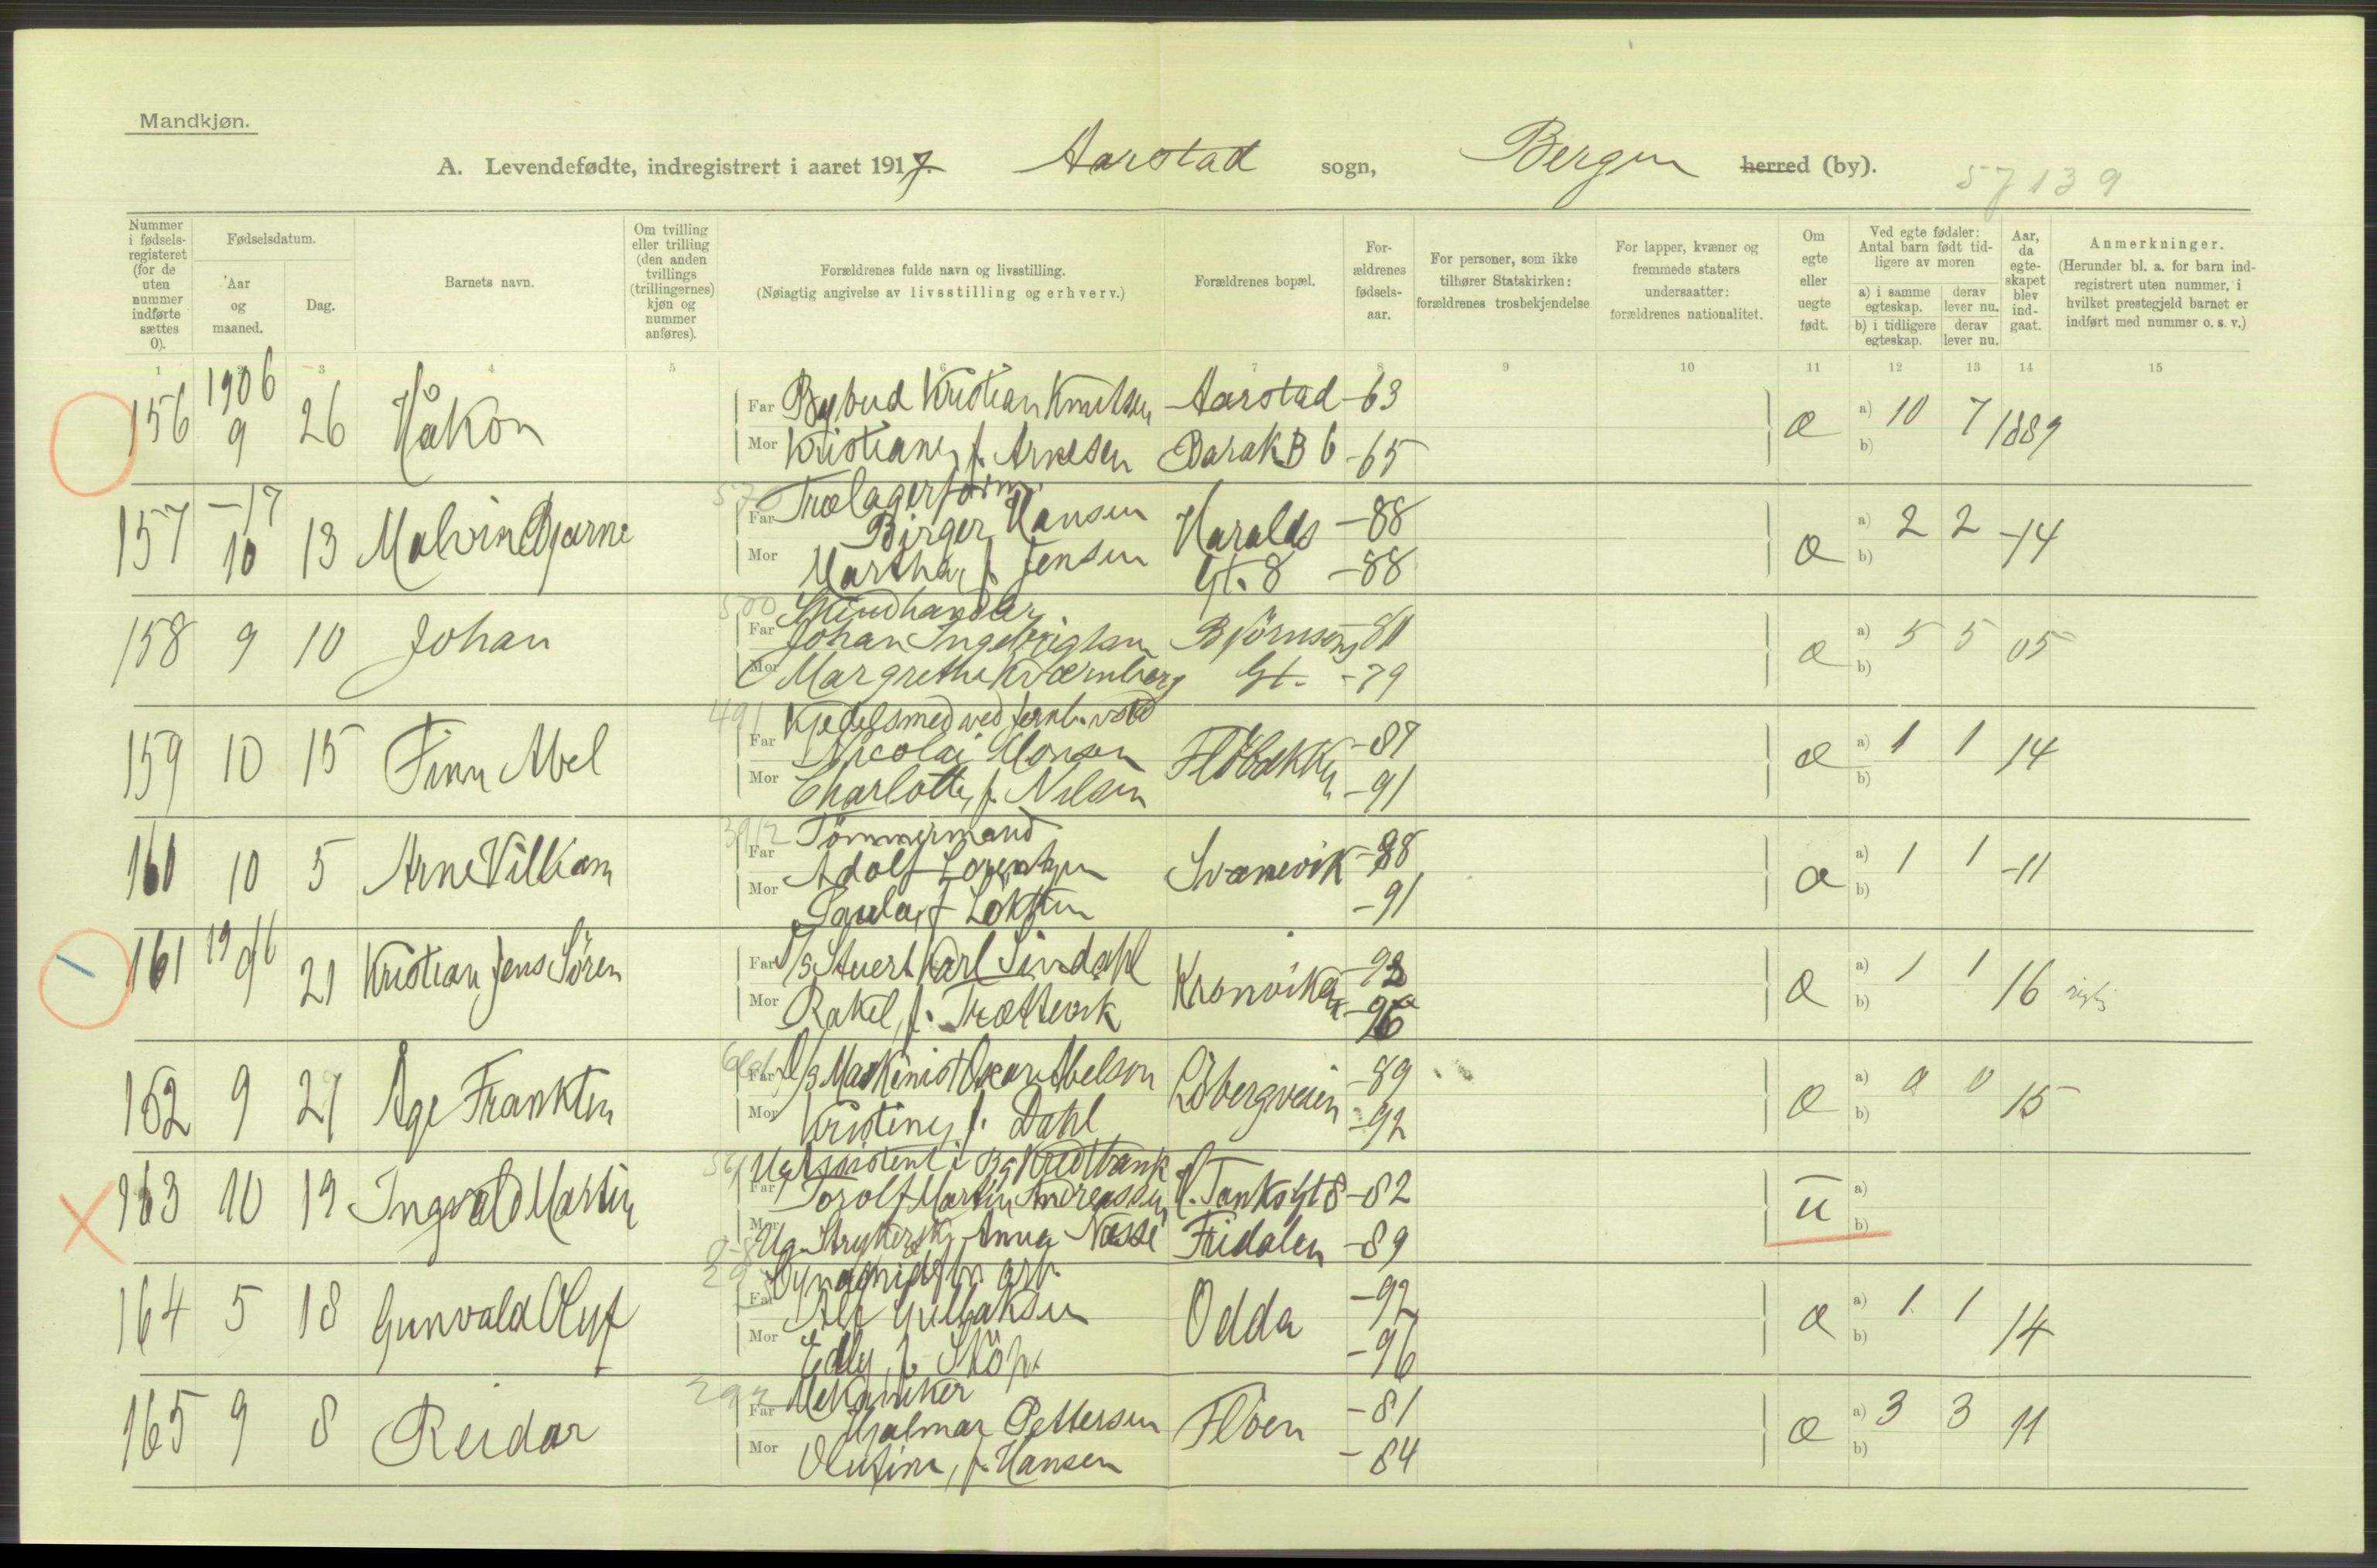 Mandkjøn.
A. Levendefødte, indregistrert i aaret 1917. Aarstad sogn, Bergen herred (by). 57139
Nummer i fødselsregisteret (for de uten nummer indførte sættes 0).
Fødselsdatum.
Aar og maaned.
Dag.
Barnets navn.
Om tvilling eller trilling (den anden tvillings (trillingernes) kjøn og nummer anføres).
Forældrenes fulde navn og livsstilling.
(Nøiagtig angivelse av livsstilling og erhverv.)
Forældrenes bopæl.
Forældrenes fødselsaar.
For personer, som ikke tilhører Statskirken: forældrenes trosbekjendelse
For lapper, kvæner og fremmede staters undersaatter: forældrenes nationalitet.
Om egte eller uegte født.
Ved egte fødsler: Antal barn født tidligere av moren
a) i samme egteskap. derav lever nu.
b) i tidligere egteskap. derav lever nu.
Aar, da egteskapet blev indgaat.
Anmerkninger.
(Herunder bl. a. for barn indregistrert uten nummer, i hvilket prestegjeld barnet er indført med nummer o. s. v.)
1 2 3 4 5 6 7 8 9 10 11 12 13 14 15
156 1906 9 26 Håkon Far Bybud Kristian Knutsen Aarstad -63 æ a) 10 7 1889
Mor Kristiane, f. Arnesen Barak B 6 -65 b)
157 -17 10 13 Malvin Bjarne Trælagerform.
Far Birger Hansen Haralds -88 æ a) 2 2 -14
Mor Martha, f. Jensen Gt. 8 -88 b)
158 9 10 Johan 500 Skindhandler
Far Johan Ingebrigtsen Bjørnsons -81 æ a) 5 5 05
Mor Margrethe Kværnberg Gt. -79 b)
159 10 15 Finn Abel 491 Kjedelsmed ved jernb. verkst
Far Nicolai Monsen Fløbakken -87 æ a) 1 1 14
Mor Charlotte, f. Nilsen -91 b)
160 10 5 Arne Villiam 3912 Tømmermand
Far Adolf Lorentzen Svanevik -88 æ a) 1 1 -11
Mor f. Løkken -91 b)
161 1916 9 21 Kristian Jens Søren Far D/s Stuert Karl Sindahl Kronviken æ a) 1 1 16
Mor Rakel, f. Trættevik -96 b)
162 9 27 Åge Frankten Far D/s Maskinist Oscar Abelson Løbergveien -89 æ a) 0 0 15
Mor Kristine, f. Dahl -92 b)
163 10 19 Ingvald Martin Ug. Assistent i Bg Kreditbank
Far Torolf Martin Andreassen C. Tanksgt 8 -82 u a)
Mor Ug. Strykerske Anna Næsse Fridalen -89 b)
164 5 18 Gunvald Oluf
Far Alf Gulbaksen Odda -92 æ a) 1 1 14
Mor Edly, f. -96 b)
165 9 8 Reidar 292 Mekaniker
Far Hjalmar Pettersen Fløen -81 æ a) 3 3 11
Mor Olufine, f. Hansen -84 b)